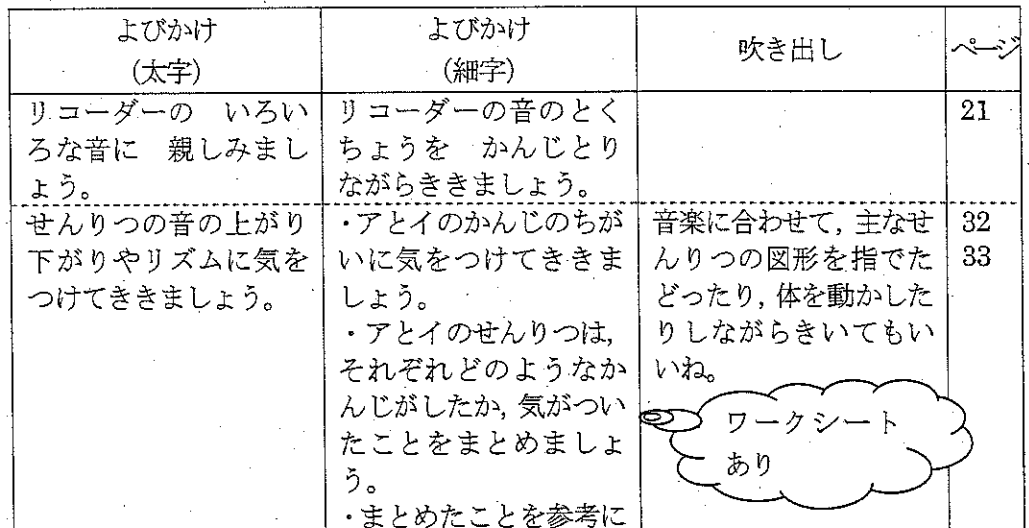 よびかけ
(太字)
よびかけ
(細字)
吹き出し
ページ
リコーダーの　いろい
ろな音に　親しみまし
ょう。
リコーダーの音のとく
ちょうを　かんじとり
ながらききましょう。
21
せんりつの音の上がり
下がりやリズムに気を
つけてききましょう。
・アとイのかんじのちが
いに気をつけてききま
しょう。
・アとイのせんりつは,
それぞれどのようなか
んじがしたか, 気がつい
たことをまとめましょ
う。
・まとめたことを参考に
音楽に合わせて, 主なせ
んりつの図形を指でた
どったり, 体を動かした
りしながらきいてもい
いね。
ワークシート
あり
32
33